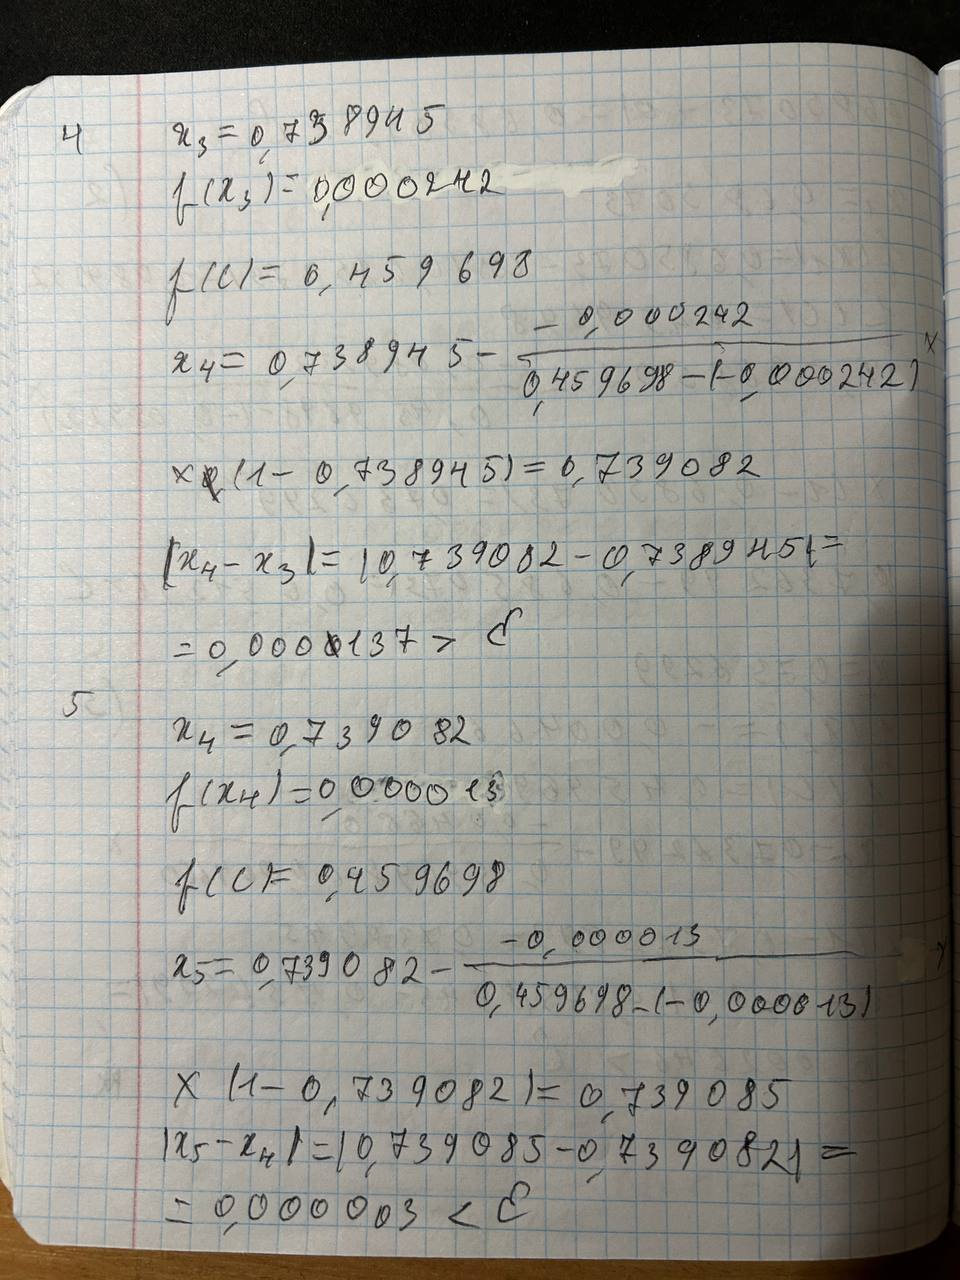 4 x₃ = 0,738945
f(x₃) = 0,000242
f(c) = 0,459698
x₄ = 0,738945 - (-0,000242)/(0,459698 - (-0,000242)) ×
× (1 - 0,738945) = 0,739082
|x₄ - x₃| = |0,739082 - 0,738945| =
= 0,000137 > ε
5 x₄ = 0,739082
f(x₄) = 0,000013
f(c) = 0,459698
x₅ = 0,739082 - (-0,000013)/(0,459698 - (-0,000013)) ×
× (1 - 0,739082) = 0,739085
|x₅ - x₄| = |0,739085 - 0,739082| =
= 0,000003 < ε